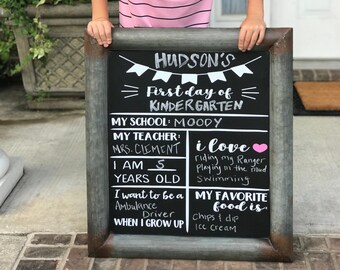 HUDSON'S
First day of
KINDERGARTEN
MY SCHOOL: MOODY
MY TEACHER:
MRS. CLEMENT
I AM 5
YEARS OLD
i love
riding my Ranger
Playing in the mud
Swimming
I want to be a
Ambulance
Driver
WHEN I GROW UP
MY FAVORITE
food is
Chips & dip
Ice cream